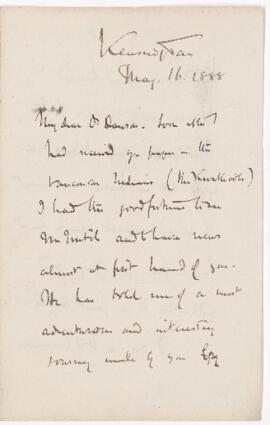 Kensington
May. 16. 1888
My dear Dr Dawson. Soon after I
had received yr paper on the
Vancouver Indians (the Kwakiools)
I had the good fortune to see
and to have news
almost at first hand of you.
He has told me of a most
adventurous and interesting
journey made by you